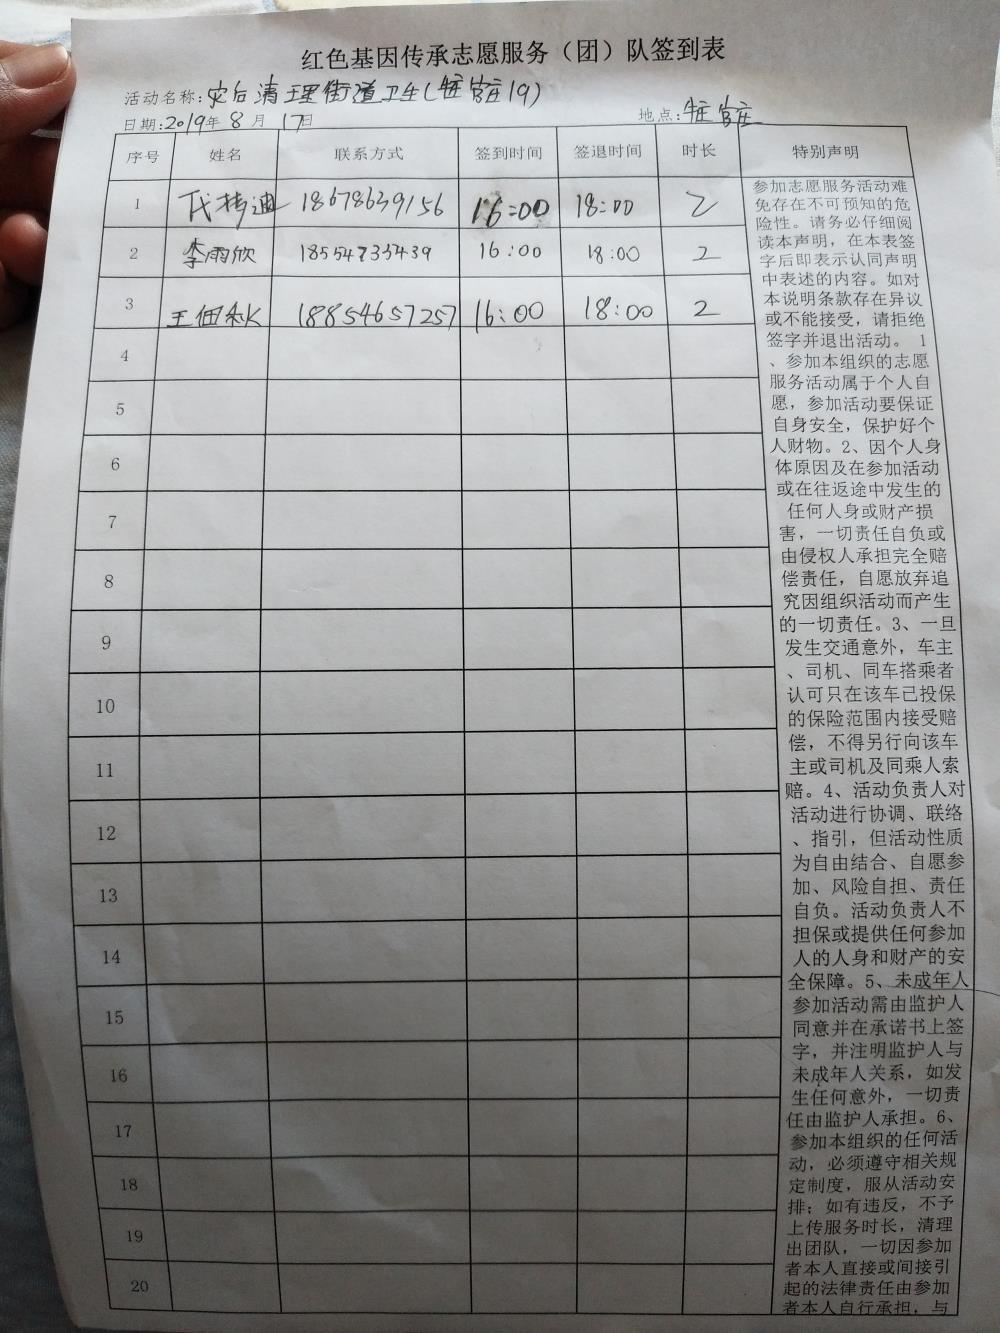 红色基因传承志愿服务（团）队签到表
活动名称:灾后清理街道卫生(官庄19)
日期:2019年8月17日 地点:官庄
序号 姓名 联系方式 签到时间 签退时间 时长 特别声明
1 代梦迪 18678639156 16:00 18:00 2
2 李雨欣 18554733439 16:00 18:00 2
3 王佃秋 18854657257 16:00 18:00 2
4
5
6
7
8
9
10
11
12
13
14
15
16
17
18
19
20
参加志愿服务活动难
免存在不可预知的危
险性。请务必仔细阅
读本声明，在本表签
字后即表示认同声明
中表述的内容。如对
本说明条款存在异议
或不能接受，请拒绝
签字并退出活动。 1
、参加本组织的志愿
服务活动属于个人自
愿，参加活动要保证
自身安全，保护好个
人财物。2、因个人身
体原因及在参加活动
或在往返途中发生的
任何人身或财产损
害，一切责任自负或
由侵权人承担完全赔
偿责任，自愿放弃追
究因组织活动而产生
的一切责任。3、一旦
发生交通意外，车主
、司机、同车搭乘者
认可只在该车已投保
的保险范围内接受赔
偿，不得另行向该车
主或司机及同乘人索
赔。4、活动负责人对
活动进行协调、联络
、指引，但活动性质
为自由结合、自愿参
加、风险自担、责任
自负。活动负责人不
担保或提供任何参加
人的人身和财产的安
全保障。5、未成年人
参加活动需由监护人
同意并在承诺书上签
字，并注明监护人与
未成年人关系，如发
生任何意外，一切责
任由监护人承担。6、
参加本组织的任何活
动，必须遵守相关规
定制度，服从活动安
排；如有违反，不予
上传服务时长，清理
出团队，一切因参加
者本人直接或间接引
起的法律责任由参加
者本人自行承担，与